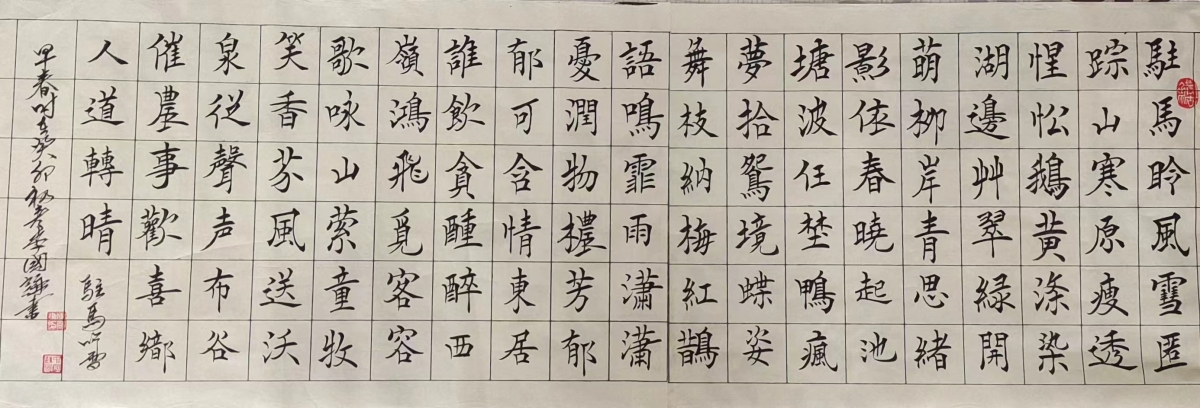 駐馬聆風雪匿
踪山寒原瘦透
惺忪鵝黄滌染
湖邊艸翠緑開
萌柳岸青思緒
影依春曉起池
塘波任埜鴨瘋
夢拾鴛境蝶姿
舞枝納梅紅鵲
語鳴霏雨瀟瀟
憂潤物檂芳郁
郁可含情東居
誰飲貪醉西
嶺鴻飛覓客容
歌咏山縈童牧
笑香芬風送沃
泉從聲声布谷
催農事歡喜鄉
人道轉晴 駐馬听雪
早春时在癸卯初春國書